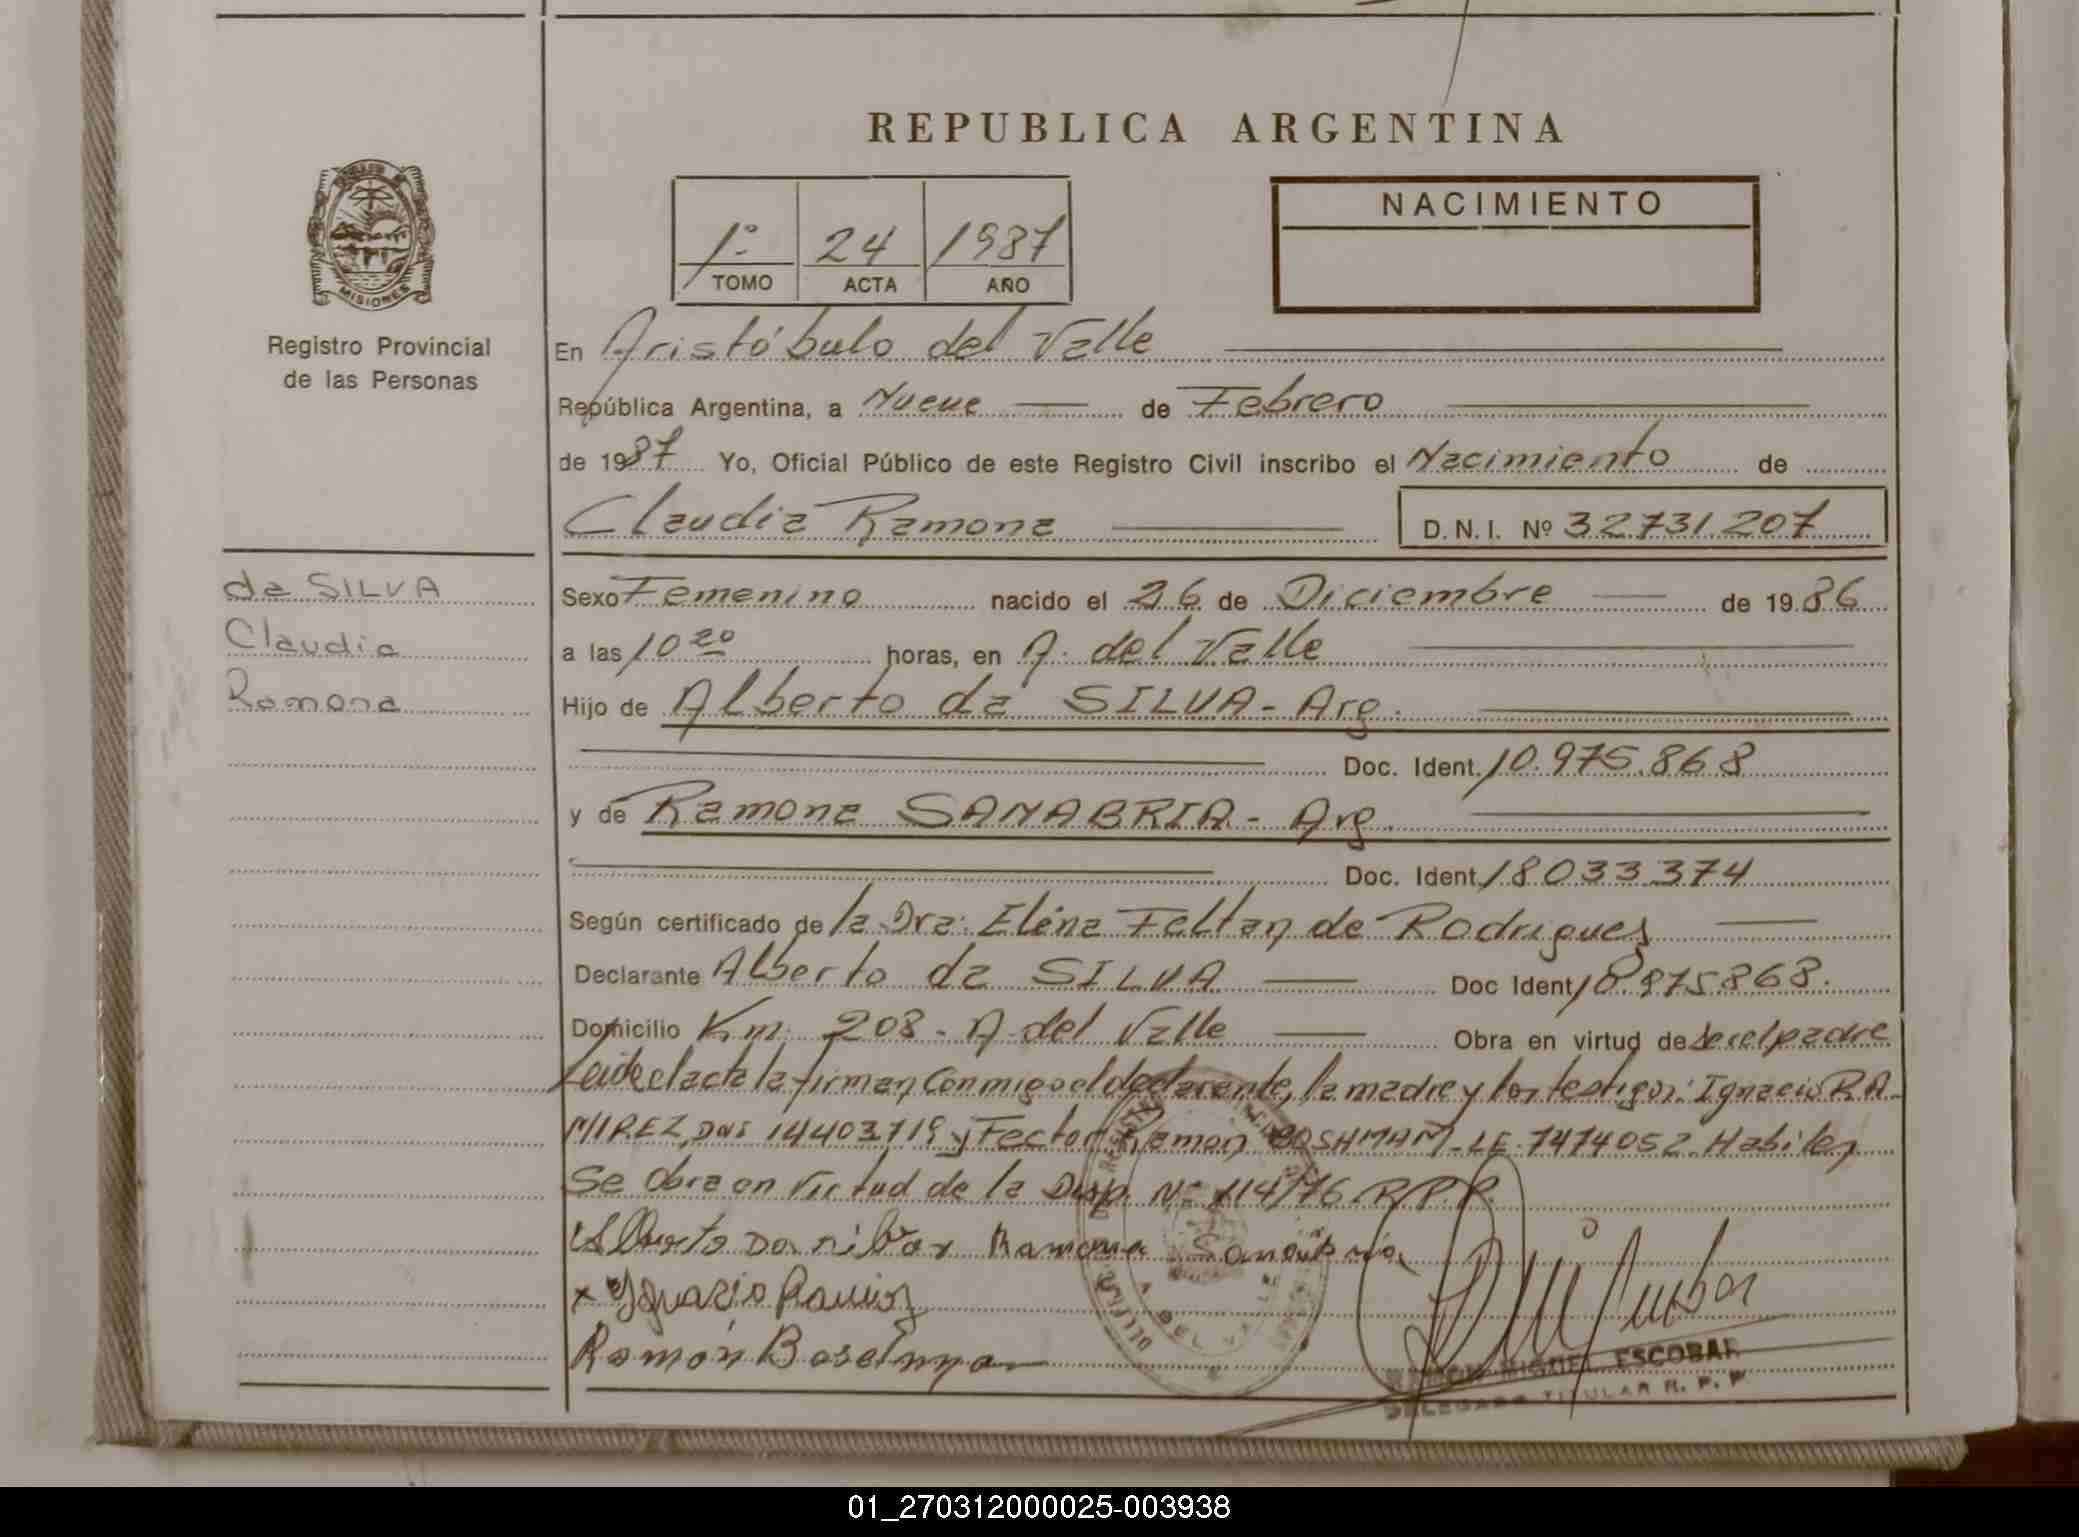 REPUBLICA ARGENTINA
MISIONES
Registro Provincial
de las Personas
1º 24 1987
TOMO ACTA AÑO
NACIMIENTO
En Aristóbulo del Valle
República Argentina, a Nueve de Febrero
de 1987 Yo, Oficial Público de este Registro Civil inscribo el Nacimiento de
Claudia Ramona D.N.I. Nº 32731.207
da SILVA
Claudia
Ramona
Sexo Femenino nacido el 26 de Diciembre de 1986
a las 10 20 horas, en A. del Valle
Hijo de Alberto da SILVA - Arg.
Doc. Ident. 10.975.868
y de Ramona SANABRIA - Arg.
Doc. Ident. 18033374
Según certificado de la Dra. Eléna Feltan de Rodrigues
Declarante Alberto da SILVA Doc Ident 10.975868.
Domicilio Km. 208 - A. del Valle Obra en virtud de ser el padre
Leide el acta la firman conmigo el declarante, la madre y los testigos: Ignacio RA-
MIREZ, DNI 14403719 y Ramon LE. 7474052. Habiles
Se obra en virtud de la Disp. Nº 114/76 R.P.P.
Alberto Da silvar Ramona Sanabria
x Ygnazio Ramirez
Ramón
MIGUEL ESCOBAR
DELEGADO TITULAR R. P. P
01_270312000025-003938